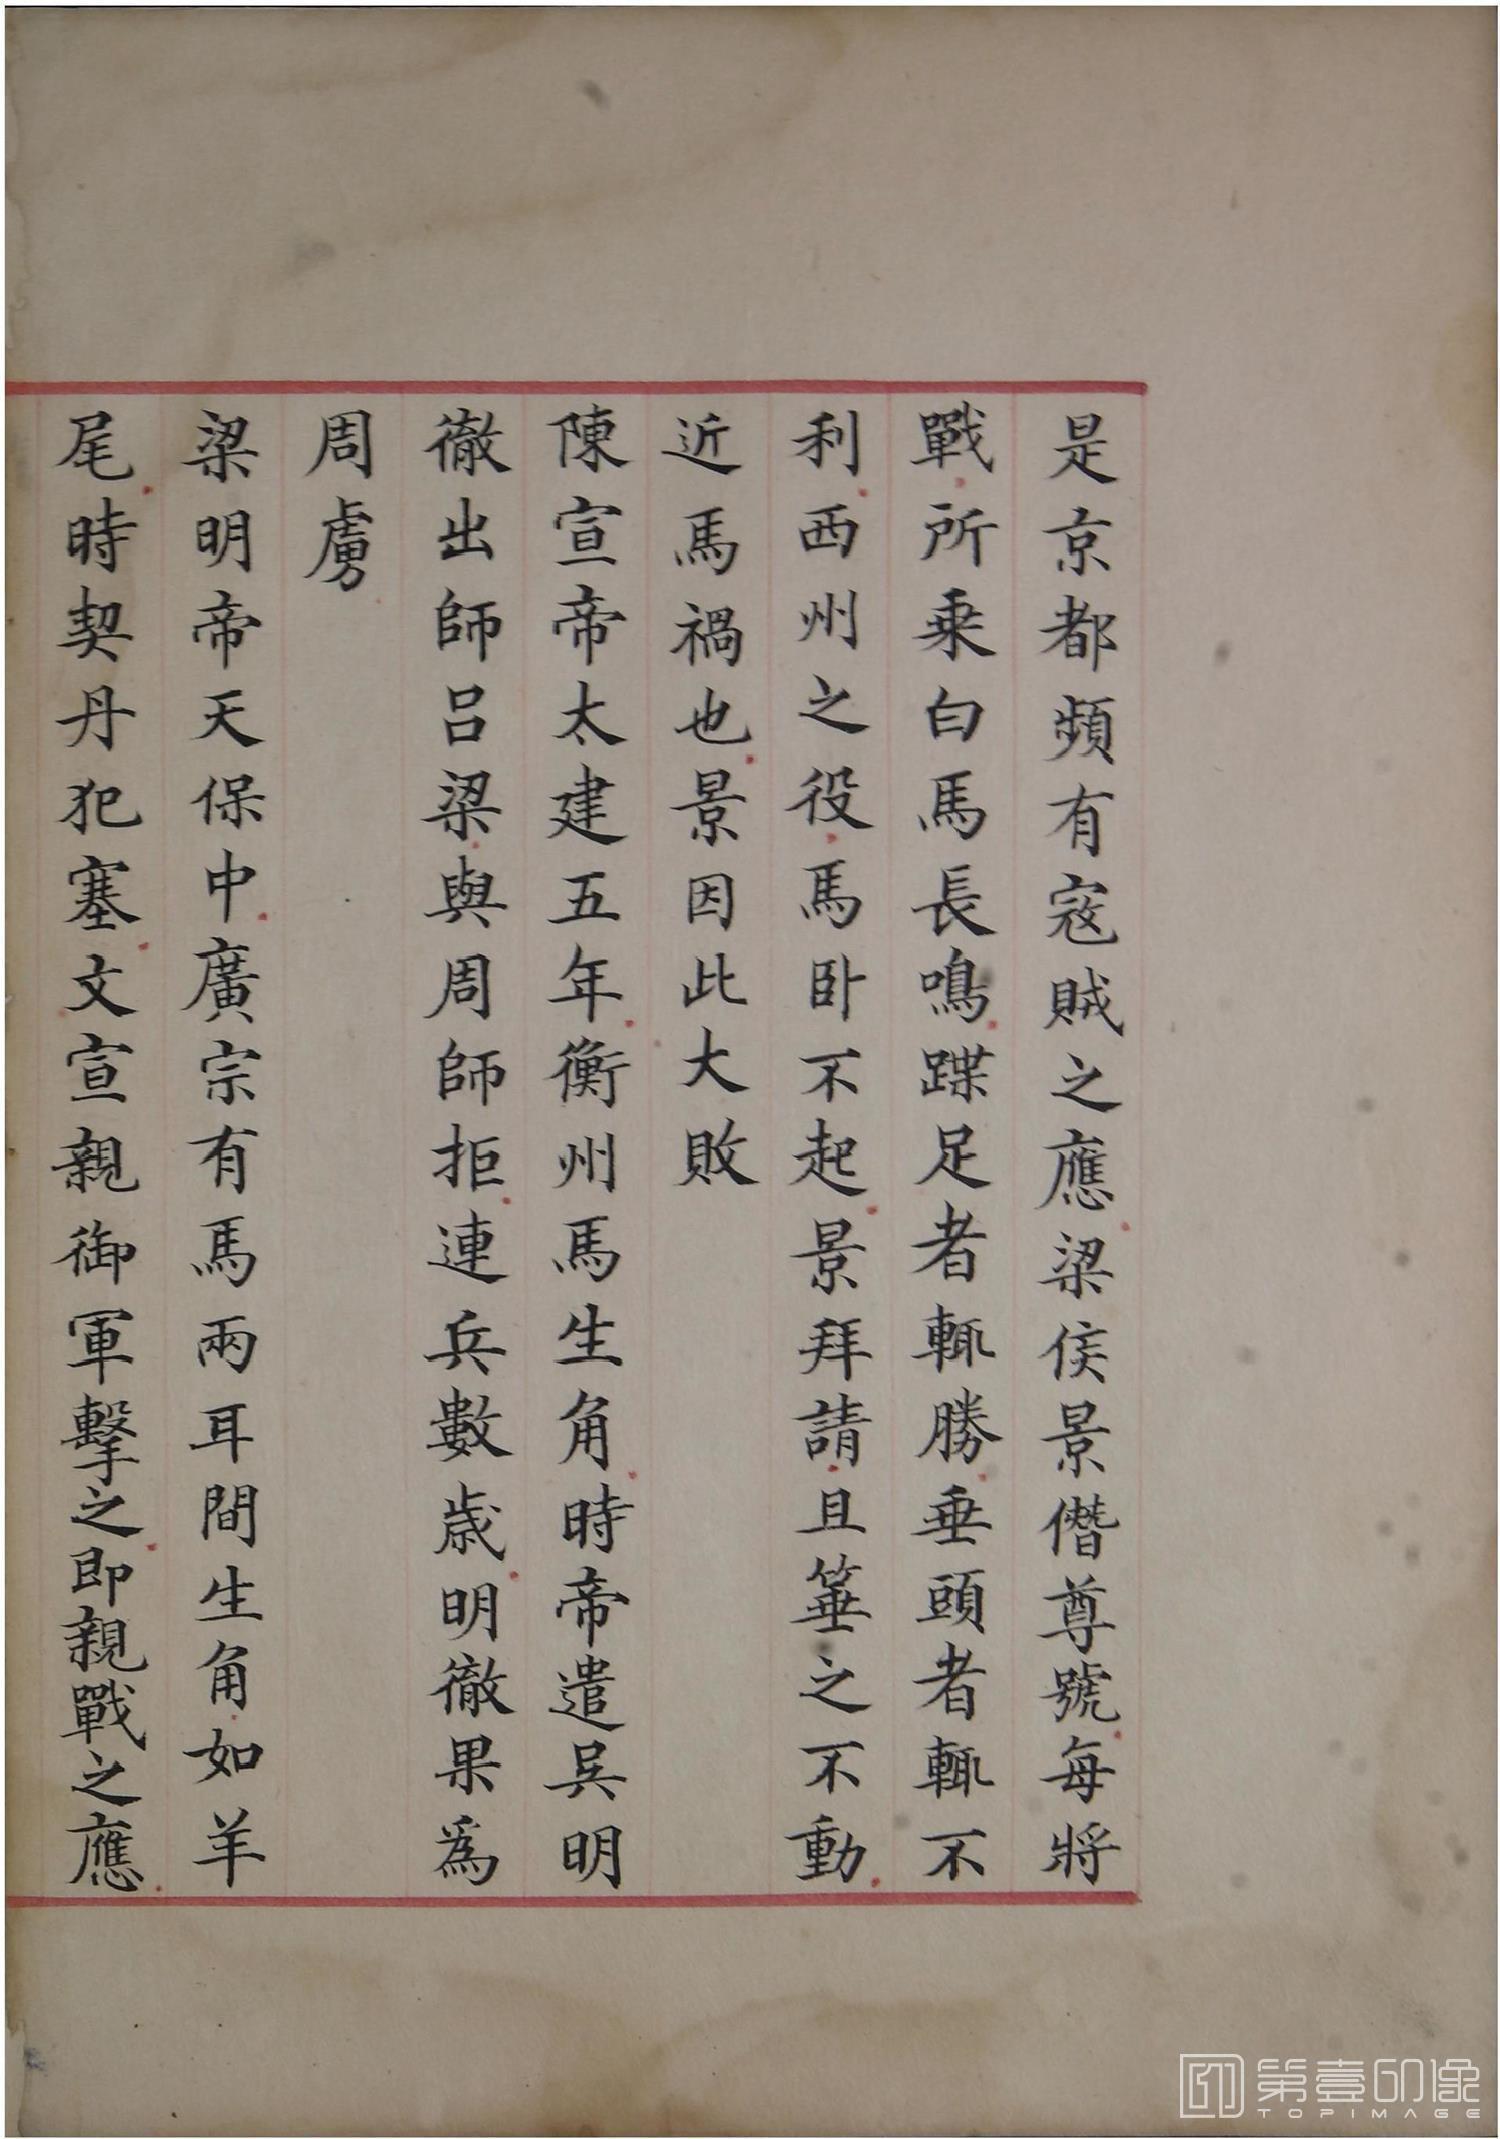 是京都頻有寇賊之應梁侯景僭尊號每將
戰所乗白馬長鳴蹀足者輒勝垂頭者輒不
利西州之役馬卧不起景拜請且箠之不動
近馬禍也景因此大敗
陳宣帝太建五年衡州馬生角時帝遣吳明
徹出師吕梁與周師拒連兵數歳明徹果為
周虜
梁明帝天保中廣宗有馬兩耳間生角如羊
尾時契丹犯塞文宣親御軍擊之即親戰之應
第壹印像
TOPIMAGE